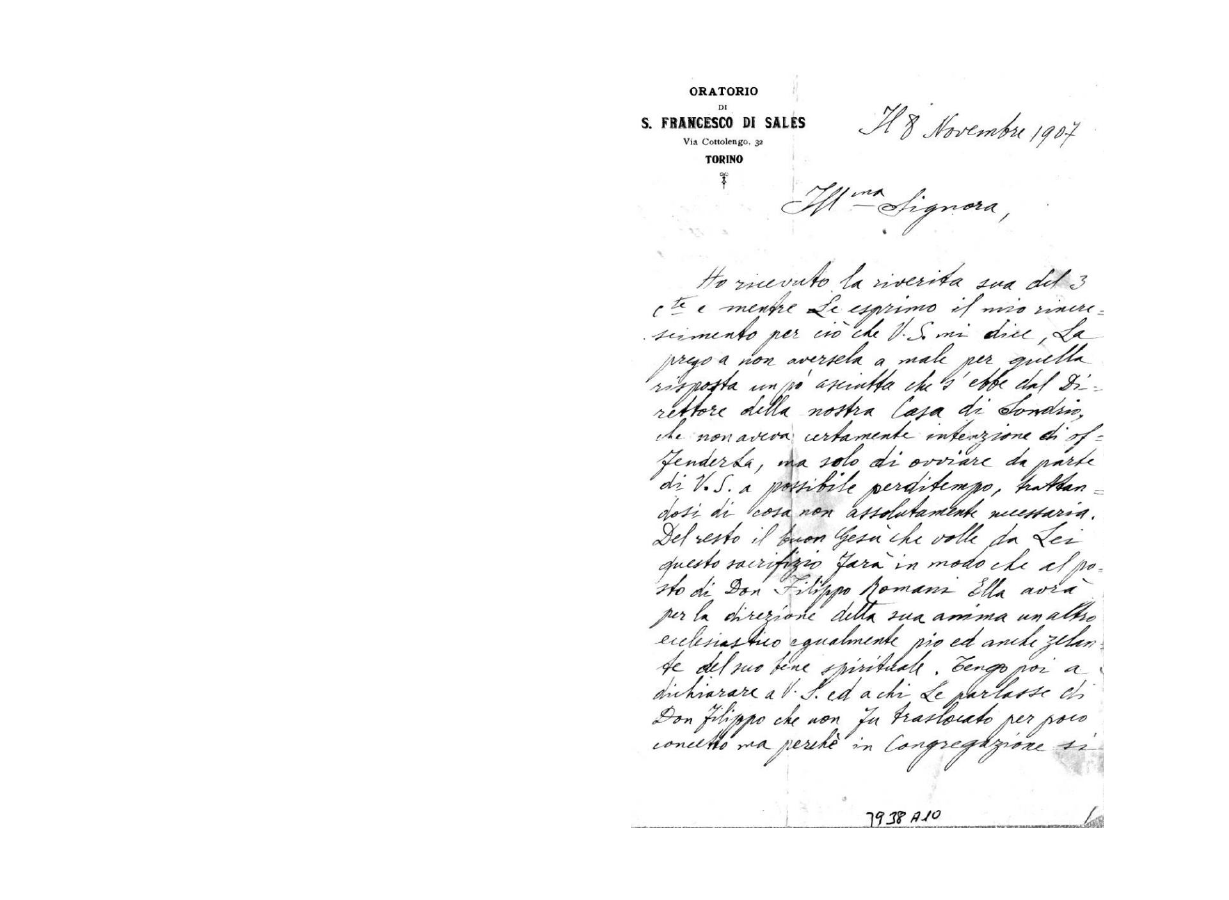 ORATORIO
DI
S. FRANCESCO DI SALES
Via Cottolengo, 32
TORINO
Il 8 Novembre 1907
Ill.ma Signora,
Ho ricevuto la riverita sua del 3
c.te e mentre Le esprimo il mio rincre=
scimento per ciò che V. S. mi dice, La
prego a non aversela a male per quella
risposta un pò asciutta che s'ebbe dal Di=
rettore della nostra Casa di Sondrio,
che non aveva certamente intenzione di of=
fenderLa, ma solo di ovviare da parte
di V. S. a possibile perditempo, trattan=
dosi di cosa non assolutamente necessaria.
Del resto il buon Gesù che volle da Lei
questo sacrifizio farà in modo che al po=
sto di Don Filippo Romani Ella avrà
per la direzione della sua anima un altro
ecclesiastico egualmente pio ed anche zelan=
te del suo bene spirituale. Tengo poi a
dichiarare a V. S. ed a chi Le parlasse di
Don Filippo che non fu traslocato per poco
concetto ma perchè in Congregazione si
7938 A10